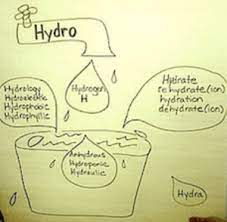 Hydro
Hydrology
Hydroelectric
Hydrophobic
Hydrophyllic
Hydrogen
H
Hydrate
rehydrate(ion)
hydration
dehydrate(ion)
Anhydrous
Hydroponic
Hydraulic
Hydra